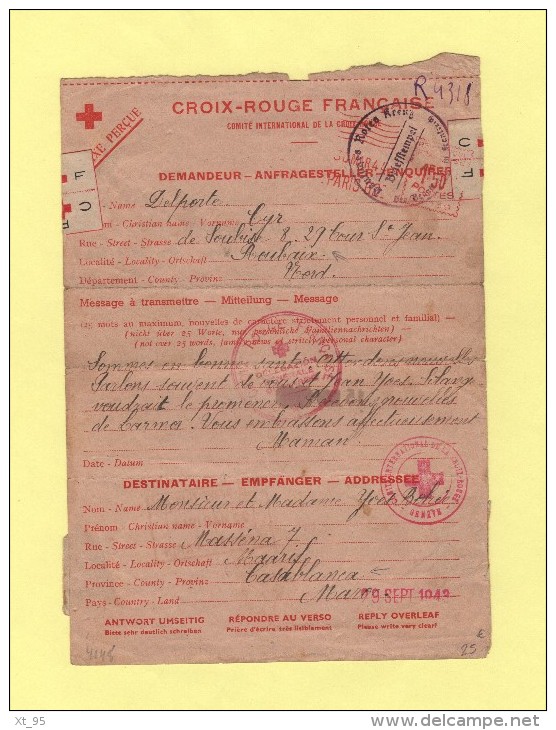 R 4318
CROIX-ROUGE FRANÇAISE
COMITÉ INTERNATIONAL DE LA CROIX-ROUGE
TAXE PERÇUE
Deutsches Rotes Kreuz
Briefstempel
DEMANDEUR — ANFRAGESTELLER — ENQUIRER
PARIS
1F50
POSTES
Nom - Name Delporte
Prénom - Christian name - Vorname Cyr
Rue - Street - Strasse de Soubise 8, 29 Cour St Jean
Localité - Locality - Ortschaft Roubaix
Département - County - Provinz Nord.
Message à transmettre — Mitteilung — Message
(25 mots au maximum, nouvelles de caractère strictement personnel et familial) —
(nicht über 25 Worte, nur persönliche Familiennachrichten) —
(not over 25 words, family news of strictly personal character)
Sommes en bonne santé. Attendons nouvelles
Parlons souvent de vous et Jean Yves.
voudrait le promener.
de Carmen. Vous embrassons affectueusement
Maman.
Date - Datum
DESTINATAIRE — EMPFÄNGER — ADDRESSEE
Nom - Name Monsieur et Madame Yves
Prénom - Christian name - Vorname
Rue - Street - Strasse Masséna 7
Localité - Locality - Ortschaft Maarif
Province - County - Provinz Casablanca
Pays - Country - Land Maroc
COMITÉ INTERNATIONAL DE LA CROIX-ROUGE
GENÈVE
09 SEPT 1942
ANTWORT UMSEITIG RÉPONDRE AU VERSO REPLY OVERLEAF
Bitte sehr deutlich schreiben Prière d'écrire très lisiblement Please write very clearly
25 €
Xt_95
delcampe.net